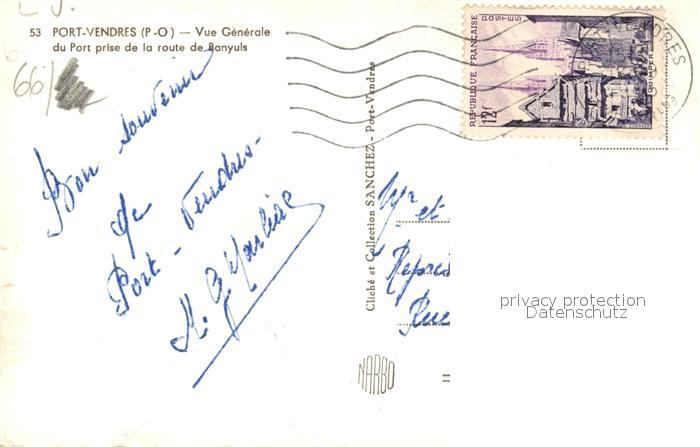 53 PORT-VENDRES (P-O) — Vue Générale
du Port prise de la route de Banyuls
66
Bon souvenir
de
Port-Vendres
Cliché et Collection SANCHEZ - Port-Vendres
NARBO
POSTES
REPUBLIQUE FRANÇAISE
12f
QUIMPER
Mr et
Rue
privacy protection
Datenschutz